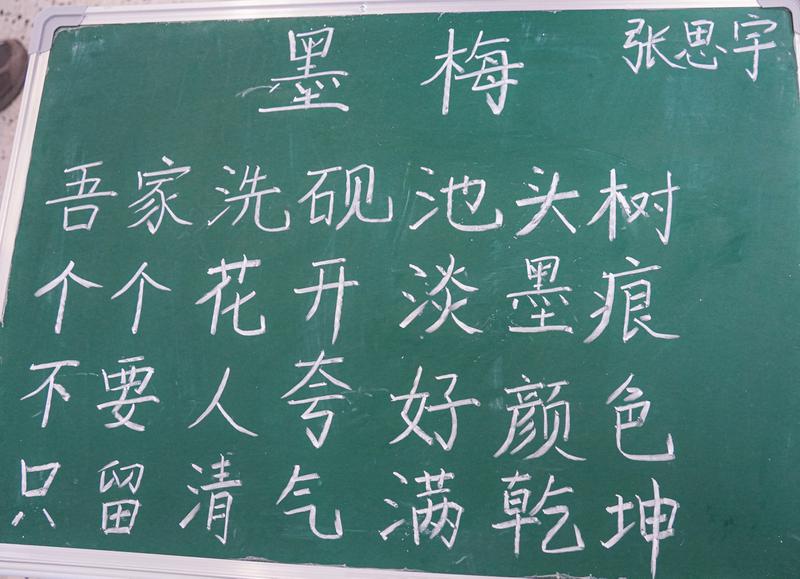 墨梅 张思宇
吾家洗砚池头树
个个花开淡墨痕
不要人夸好颜色
只留清气满乾坤